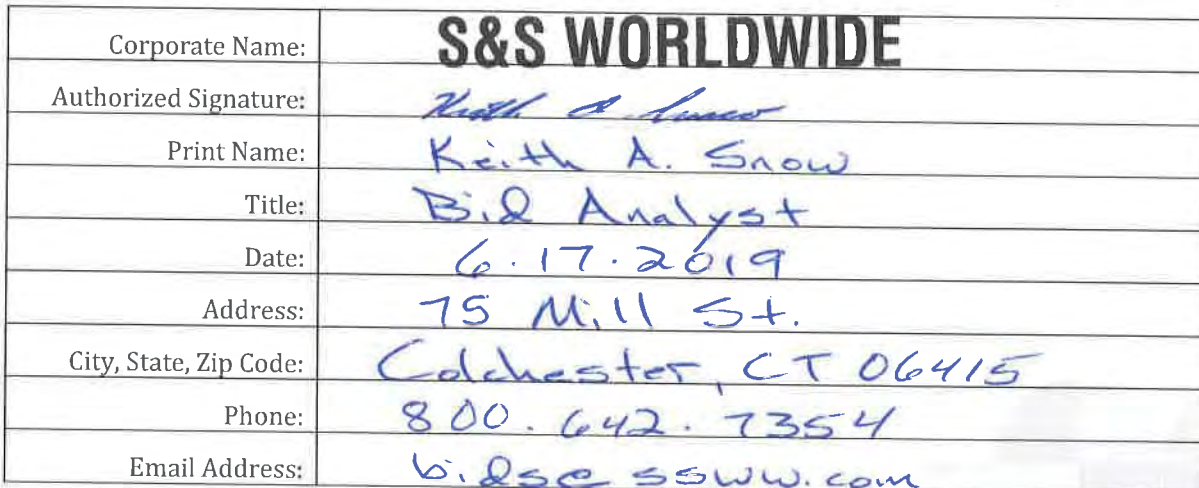 Corporate Name: S&S WORLDWIDE
Authorized Signature: Keith A. Snow
Print Name: Keith A. Snow
Title: Bid Analyst
Date: 6.17.2019
Address: 75 Mill St.
City, State, Zip Code: Colchester, CT 06415
Phone: 800.642.7354
Email Address: bids@ssww.com